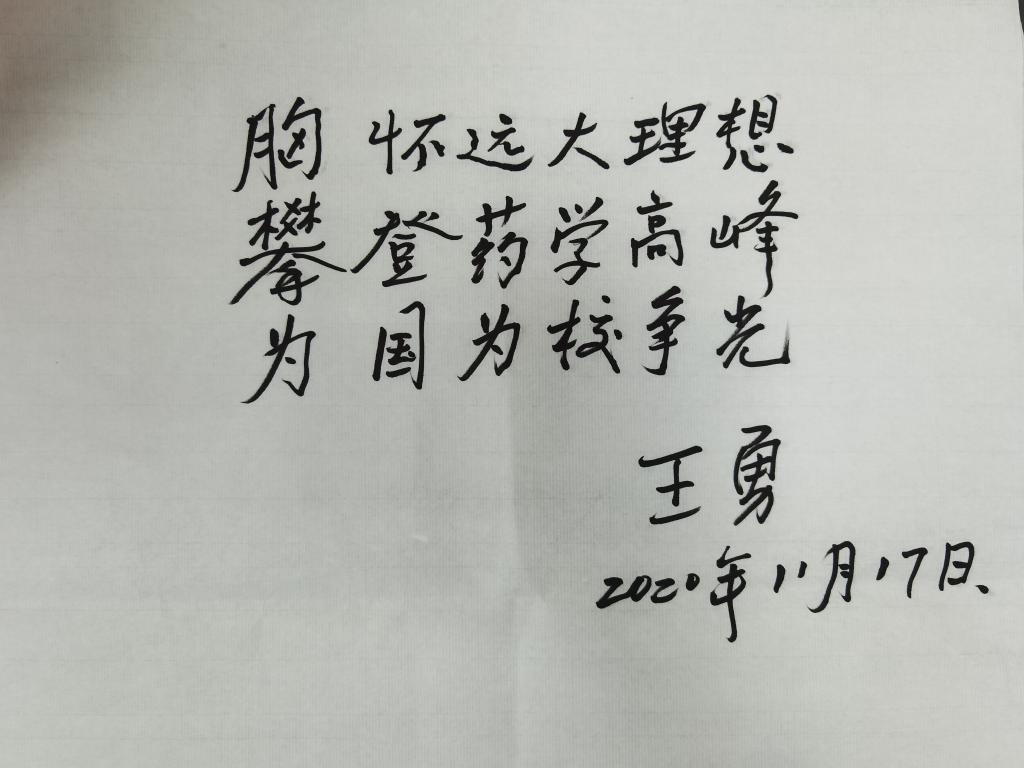 胸怀远大理想
攀登药学高峰
为国为校争光
王勇
2020年11月17日、